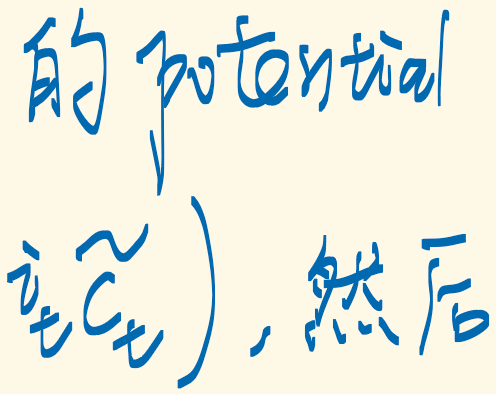 的 potential
i_t c̃_t), 然后